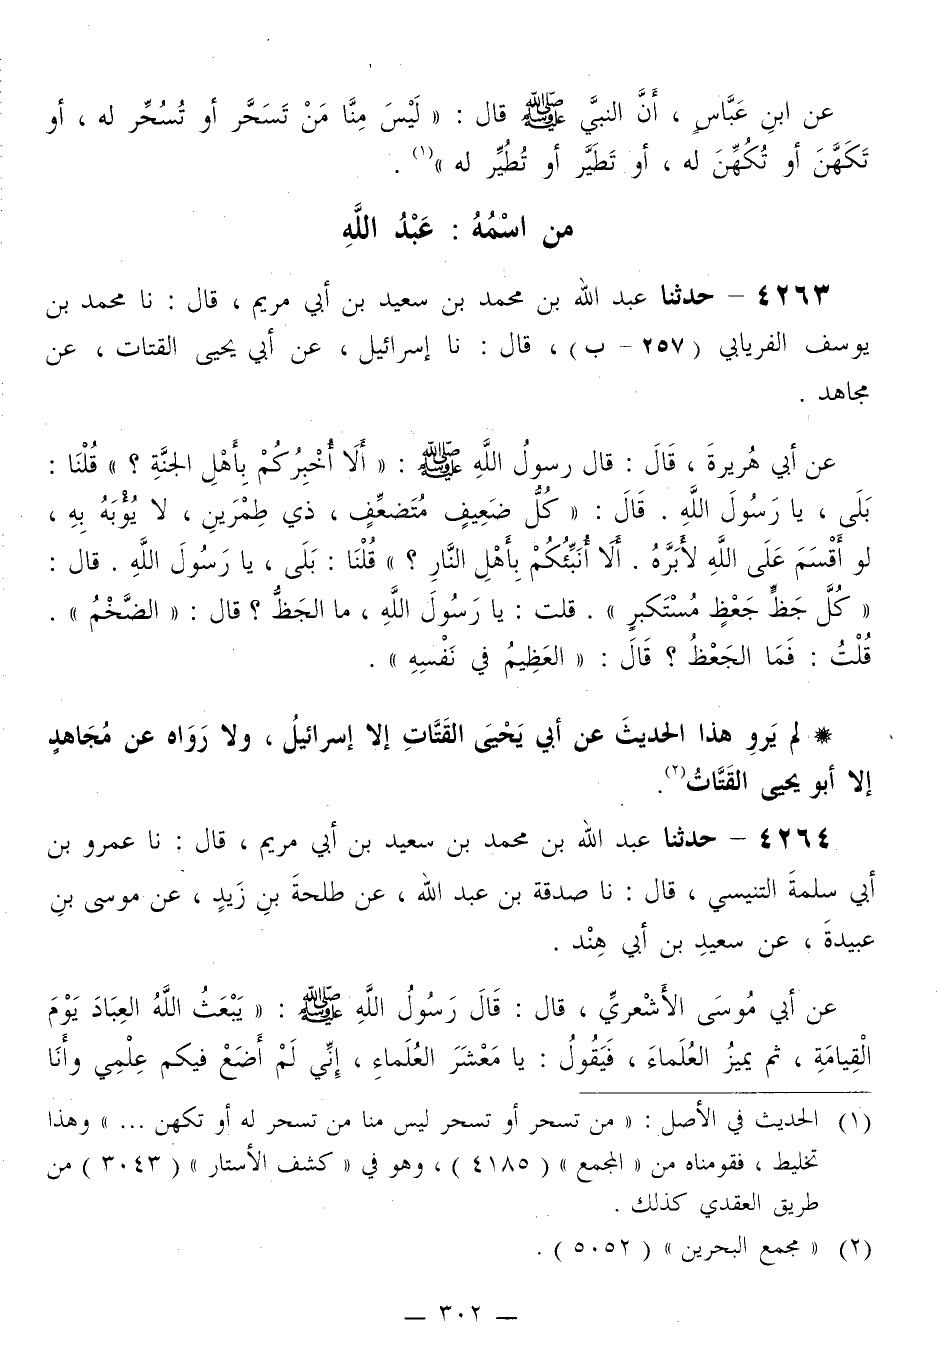 عن ابنِ عَبَّاسٍ ، أَنَّ النبيَّ ﷺ قال : « لَيْسَ مِنَّا مَنْ تَسَحَّر أو تُسُحِّر له ، أو
تَكَهَّنَ أو تُكُهِّنَ له ، أو تَطَيَّر أو تُطُيِّر له »(١) .
من اسْمُهُ : عَبْدُ اللَّهِ
٤٢٦٣ - حدثنا عبد الله بن محمد بن سعيد بن أبي مريم ، قال : نا محمد بن
يوسف الفريابي ( ٢٥٧ - ب ) ، قال : نا إسرائيل ، عن أبي يحيى القتات ، عن
مجاهد .
عن أبي هُريرةَ ، قَالَ : قال رسولُ اللَّهِ ﷺ : « أَلَا أُخْبِرُكُمْ بِأَهْلِ الجنَّةِ ؟ » قُلْنَا :
بَلَى ، يا رَسُولَ اللَّهِ . قَالَ : « كُلُّ ضَعِيفٍ مُتَضعِّفٍ ، ذي طِمْرَينِ ، لا يُؤْبَهُ بِهِ ،
لو أَقْسَمَ عَلَى اللَّهِ لأَبَرَّهُ . أَلَا أُنَبِّئُكُمْ بِأَهْلِ النَّارِ ؟ » قُلْنَا : بَلَى ، يا رَسُولَ اللَّهِ . قال :
« كُلُّ جَظٍّ جَعْظٍ مُسْتَكبرٍ » . قلت : يا رَسُولَ اللَّهِ ، ما الجَظُّ ؟ قال : « الضَّخْمُ » .
قُلْتُ : فَمَا الجَعْظُ ؟ قَالَ : « العَظِيمُ في نَفْسِهِ » .
* لم يَروِ هذا الحديثَ عن أبي يَحْيَى القَتَّاتِ إلا إسرائيلُ ، ولا رَوَاه عن مُجَاهدٍ
إلا أبو يحيى القَتَّاتُ(٢).
٤٢٦٤ - حدثنا عبد الله بن محمد بن سعيد بن أبي مريم ، قال : نا عمرو بن
أبي سلمةَ التنيسي ، قال : نا صدقة بن عبد الله ، عن طلحةَ بنِ زَيدٍ ، عن موسى بنِ
عبيدةَ ، عن سعيدِ بن أبي هِنْد .
عن أبي مُوسَى الأَشْعريِّ ، قال : قَالَ رَسُولُ اللَّهِ ﷺ : « يَبْعَثُ اللَّهُ العِبَادَ يَوْمَ
الْقِيامَةِ ، ثم يميزُ العُلَماءَ ، فَيَقُولُ : يا مَعْشَرَ العُلَماءِ ، إنِّي لَمْ أَضَعْ فيكم عِلْمِي وأَنَا
(١) الحديث في الأصل : « من تسحر أو تسحر ليس منا من تسحر له أو تكهن ... » وهذا
تخليط ، فقومناه من « المجمع » ( ٤١٨٥ ) ، وهو في « كشف الأستار » ( ٣٠٤٣ ) من
طريق العقدي كذلك .
(٢) « مجمع البحرين » ( ٥٠٥٢ ) .
ـ ٣٠٢ ـ